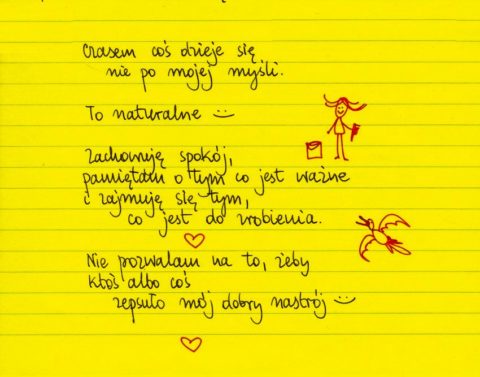 Czasem coś dzieje się
nie po mojej myśli.
To naturalne :)
Zachowuję spokój,
pamiętam o tym co jest ważne
i zajmuję się tym,
co jest do zrobienia.
Nie pozwalam na to, żeby
ktoś albo coś
zepsuło mój dobry nastrój :)